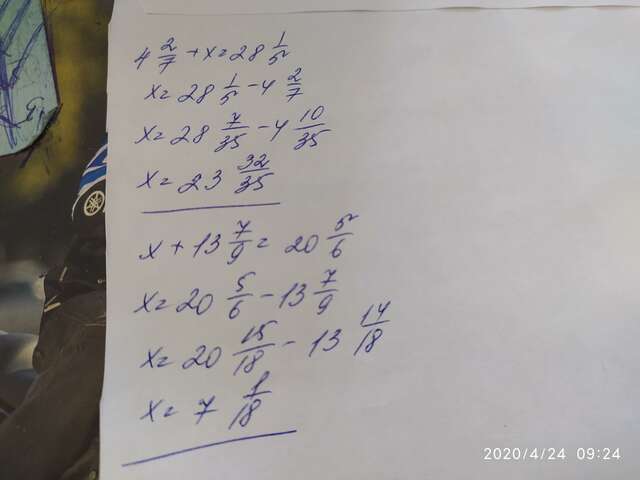 4 2/7 + x = 28 1/5
x = 28 1/5 - 4 2/7
x = 28 7/35 - 4 10/35
x = 23 32/35
x + 13 7/9 = 20 5/6
x = 20 5/6 - 13 7/9
x = 20 15/18 - 13 14/18
x = 7 1/18
2020/4/24 09:24